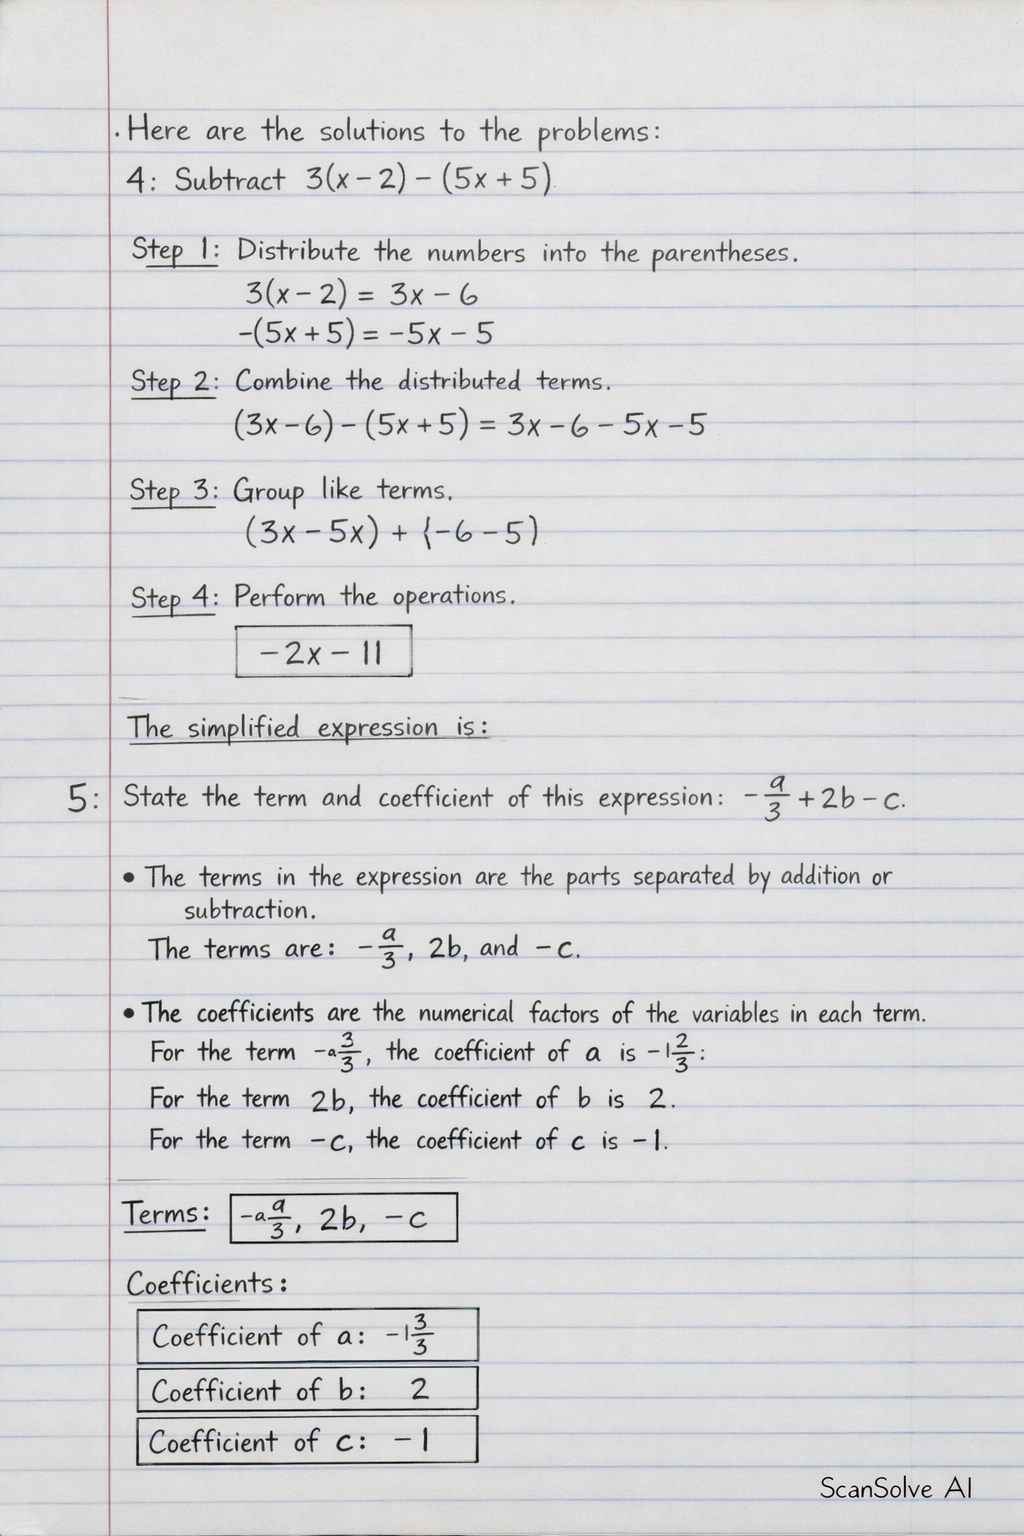 . Here are the solutions to the problems:
4: Subtract 3(x − 2) − (5x + 5).
Step 1: Distribute the numbers into the parentheses.
3(x − 2) = 3x − 6
-(5x + 5) = −5x − 5
Step 2: Combine the distributed terms.
(3x − 6) − (5x + 5) = 3x − 6 − 5x − 5
Step 3: Group like terms.
(3x − 5x) + (−6 − 5)
Step 4: Perform the operations.
−2x − 11
The simplified expression is:
5: State the term and coefficient of this expression: −a/3 + 2b − c.
• The terms in the expression are the parts separated by addition or
subtraction.
The terms are: −a/3, 2b, and −c.
• The coefficients are the numerical factors of the variables in each term.
For the term −a3/3, the coefficient of a is −1 2/3:
For the term 2b, the coefficient of b is 2.
For the term −c, the coefficient of c is −1.
Terms: −a a/3, 2b, −c
Coefficients:
Coefficient of a: −1 3/3
Coefficient of b: 2
Coefficient of c: −1
ScanSolve AI